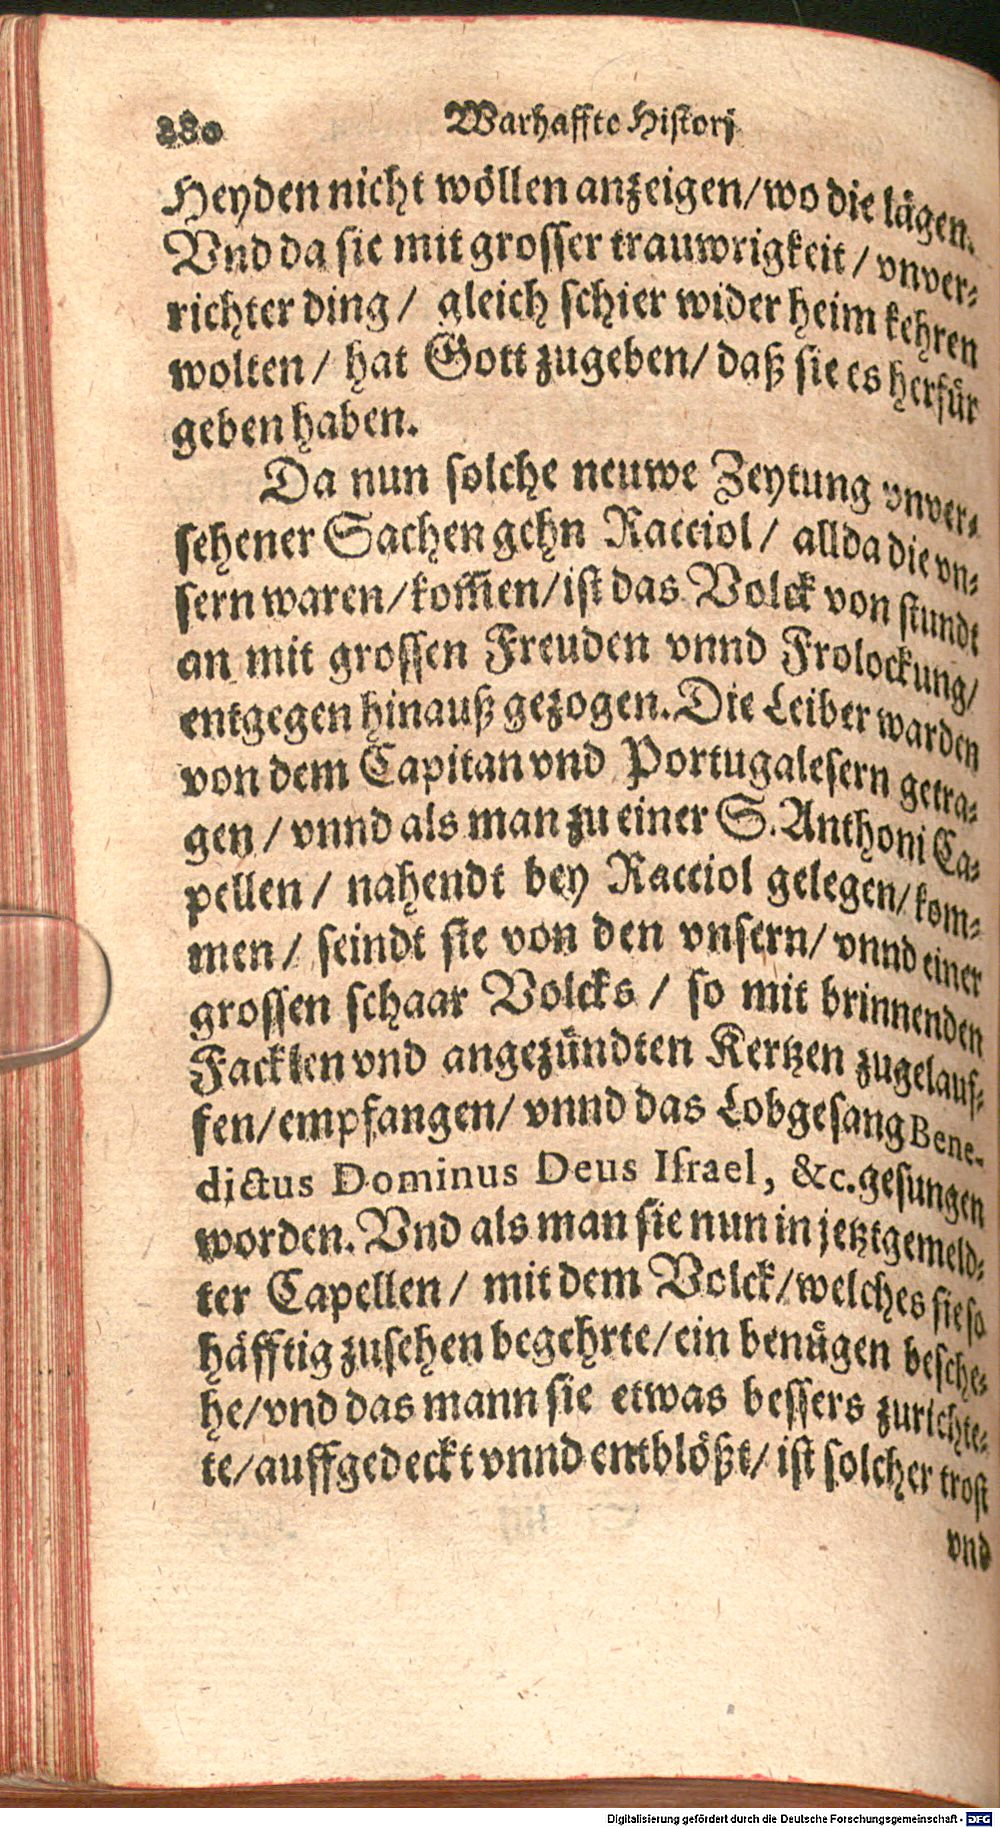 280 Warhaffte Historj
Heyden nicht wöllen anzeigen/ wo die lägen.
Vnd da sie mit grosser trauwrigkeit / vnver-
richter ding / gleich schier wider heim kehren
wolten / hat Gott zugeben/ daß sie es herfür
geben haben.
Da nun solche neuwe Zeytung vnver-
sehener Sachen gehn Racciol / allda die vn-
sern waren/ kom̃en/ ist das Volck von stundt
an mit grossen Freuden vnnd Frolockung/
entgegen hinauß gezogen. Die Leiber warden
von dem Capitan vnd Portugalesern getra-
gen / vnnd als man zu einer S. Anthoni Ca-
pellen / nahendt bey Racciol gelegen/ kom-
men / seindt sie von den vnsern/ vnnd einer
grossen schaar Volcks / so mit brinnenden
Facklen vnd angezündten Kertzen zugelauf-
fen/ empfangen/ vnnd das Lobgesang Bene-
dictus Dominus Deus Israel, &c. gesungen
worden. Vnd als man sie nun in jetztgemeld-
ter Capellen / mit dem Volck/ welches sie so
häfftig zusehen begehrte/ ein benügen besche-
he/ vnd das mann sie etwas bessers zurichte-
te/ auffgedeckt vnnd entblößt/ ist solcher trost
vnd
Digitalisierung gefördert durch die Deutsche Forschungsgemeinschaft - DFG